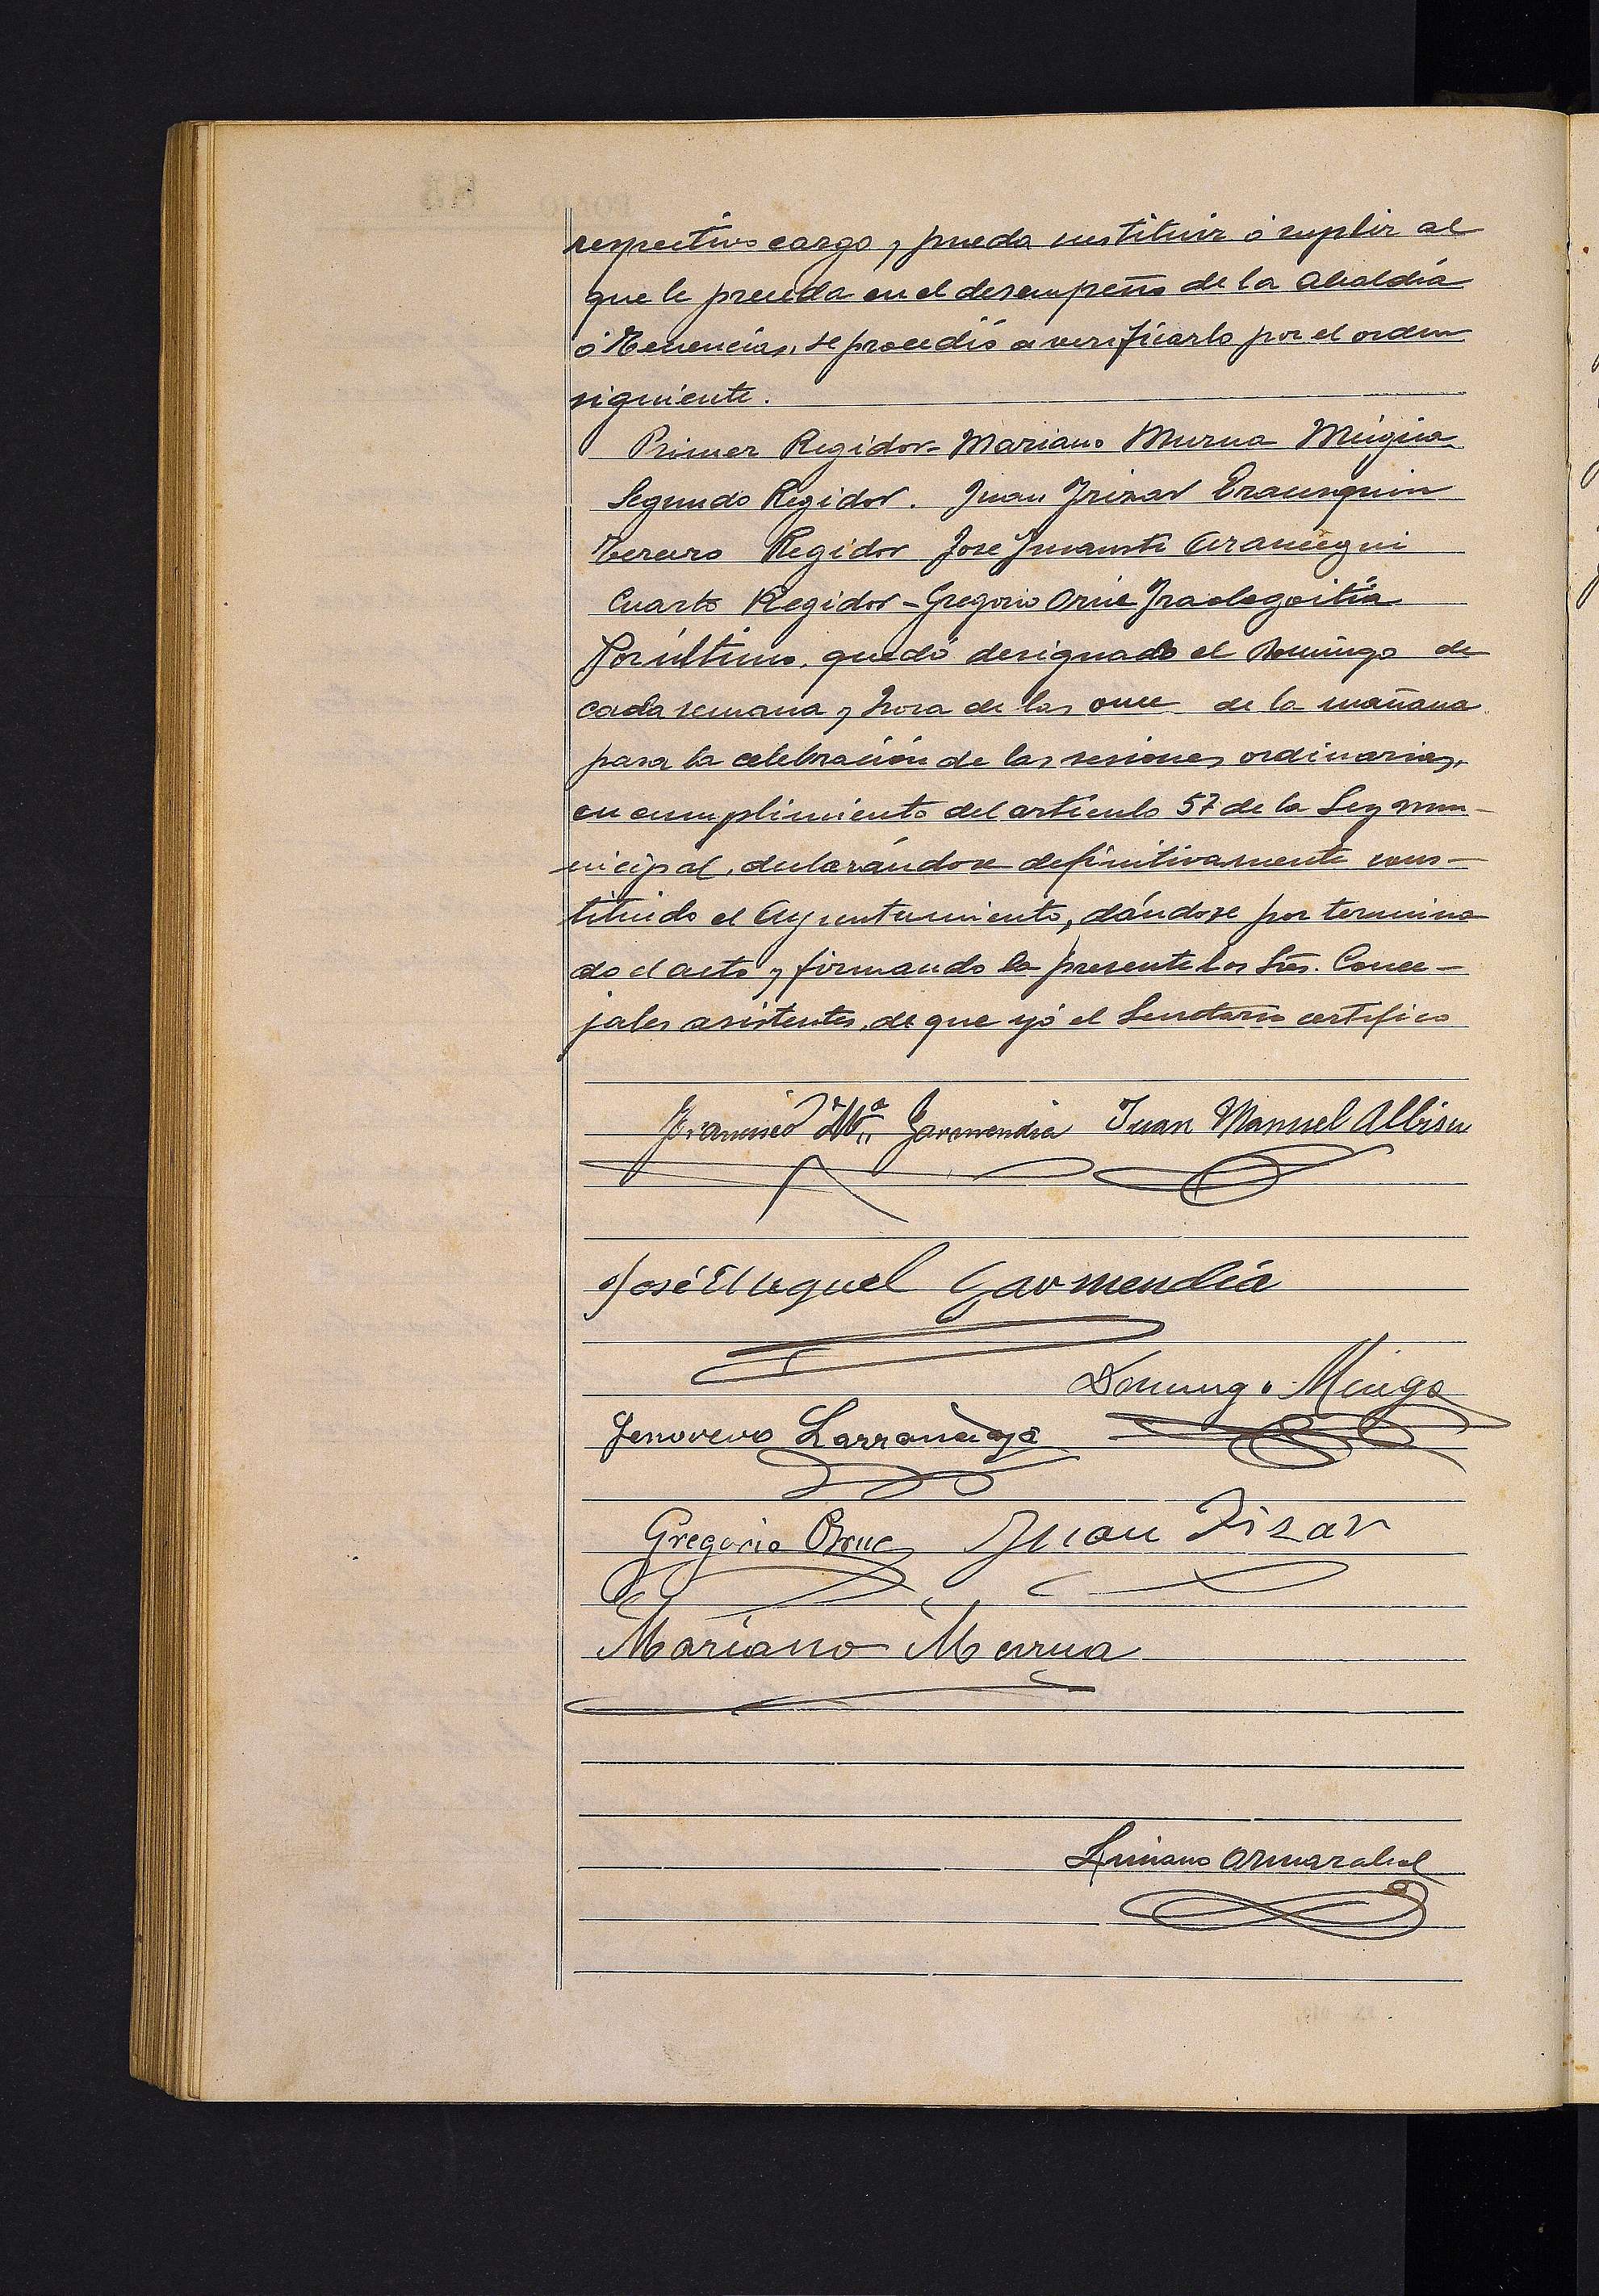 respectivo cargo, pueda sustituir ó suplir al
que le preceda en el desempeño de la Alcaldía
ó Tenencias, se procedió a verificarlo por el orden
siguiente.
Primer Regidor- Mariano Murua Múgica
Segundo Regidor. Juan Irizar Erausquin
Tercero Regidor José Aramegui
Cuarto Regidor - Gregorio Orúe Iraolagoitia
Por último, quedó designado el Domingo de
cada semana y hora de las once de la mañana
para la celebración de las sesiones ordinarias,
en cumplimiento del artículo 57 de la Ley mu-
nicipal, declarándose definitivamente cons-
tituido el Ayuntamiento, dándose por termina
do el acto y firmando la presente los Srs. Conce-
jales asistentes, de que yó el Secretario certifico
Francisco Mª Garmendia Juan Manuel Albisu
José Miguel Garmendia
Domingo Mugo
Jenovevo Larrañaga
Gregorio Orue Juan Irizar
Mariano Murua
Luciano